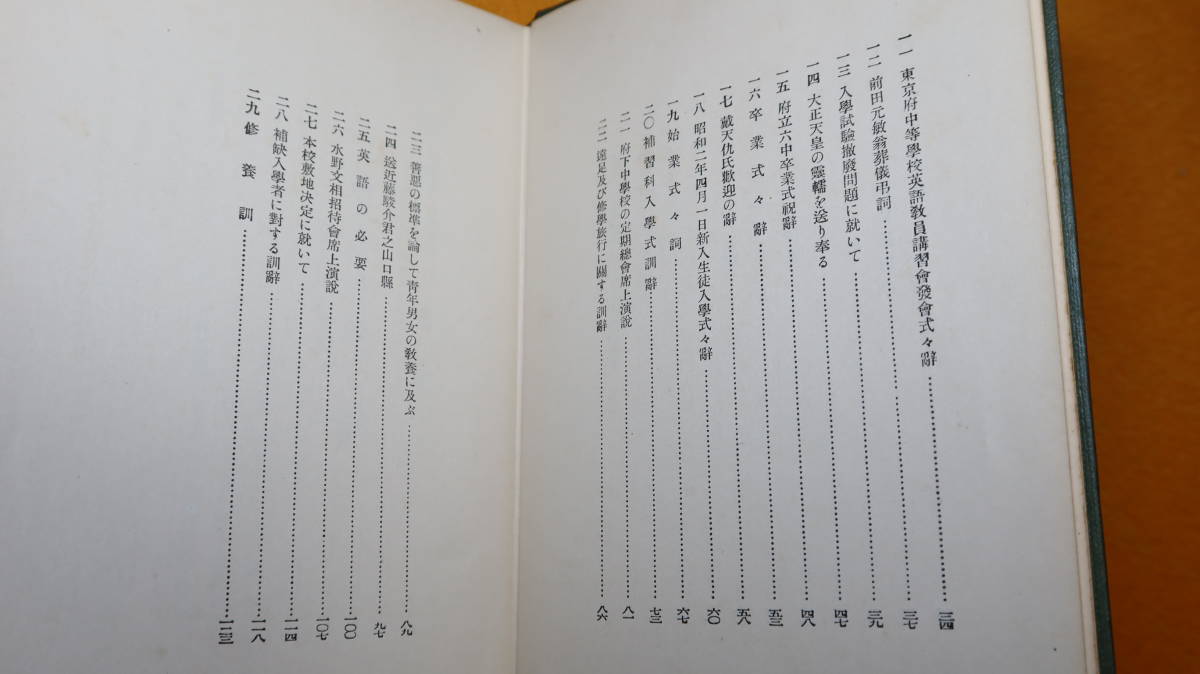 一一 東京府中等學校英語教員講習會發會式々辭……三四
一二 前田元敏翁葬儀弔詞……三七
一三 入學試驗撤廢問題に就いて……三九
一四 大正天皇の靈轜を送り奉る……四七
一五 府立六中卒業式祝辭……四八
一六 卒業式々辭……五三
一七 戴天仇氏歡迎の辭……五八
一八 昭和二年四月一日新入生徒入學式々辭……六〇
一九 始業式々詞……六七
二〇 補習科入學式訓辭……七三
二一 府下中學校の定期總會席上演說……八一
二二 遠足及び修學旅行に關する訓辭……八六
二三 善惡の標準を論して靑年男女の敎養に及ぶ……八九
二四 送近藤駿介君之山口縣……九七
二五 英語の必要……一〇〇
二六 水野文相招待會席上演說……一〇七
二七 本校敷地决定に就いて……一一四
二八 補缺入學者に對する訓辭……一一八
二九 修養訓……一二三